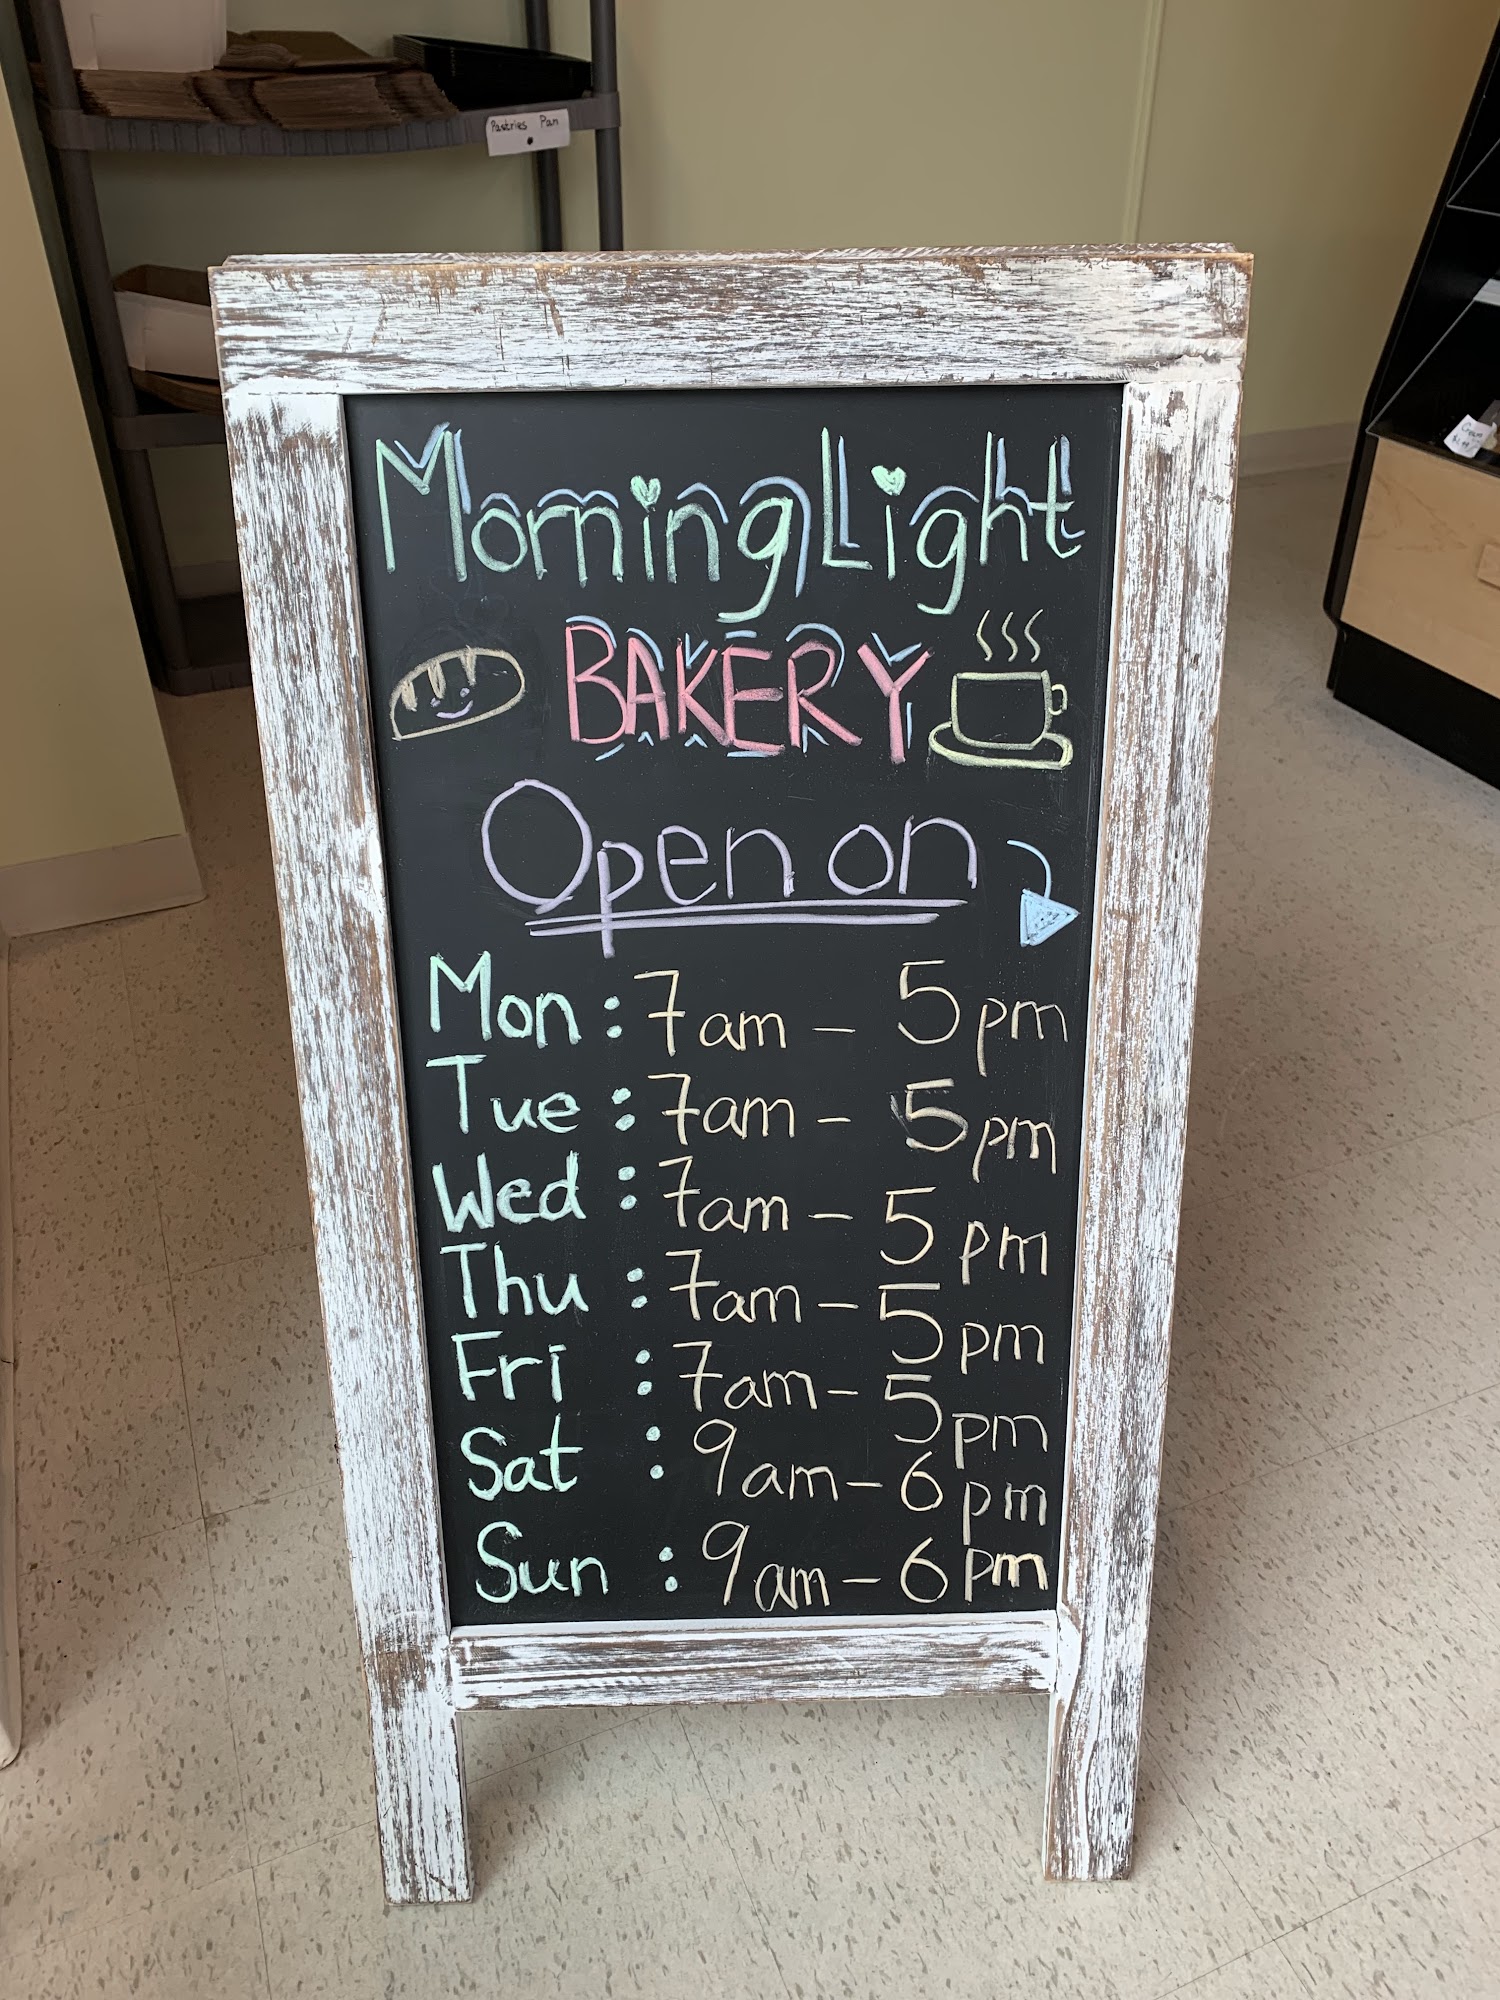 Pastries Pan
Morning Light
BAKERY
Open on
Mon : 7am - 5pm
Tue : 7am - 5pm
Wed : 7am - 5pm
Thu : 7am - 5pm
Fri : 7am - 5pm
Sat : 9am - 6pm
Sun : 9am - 6pm